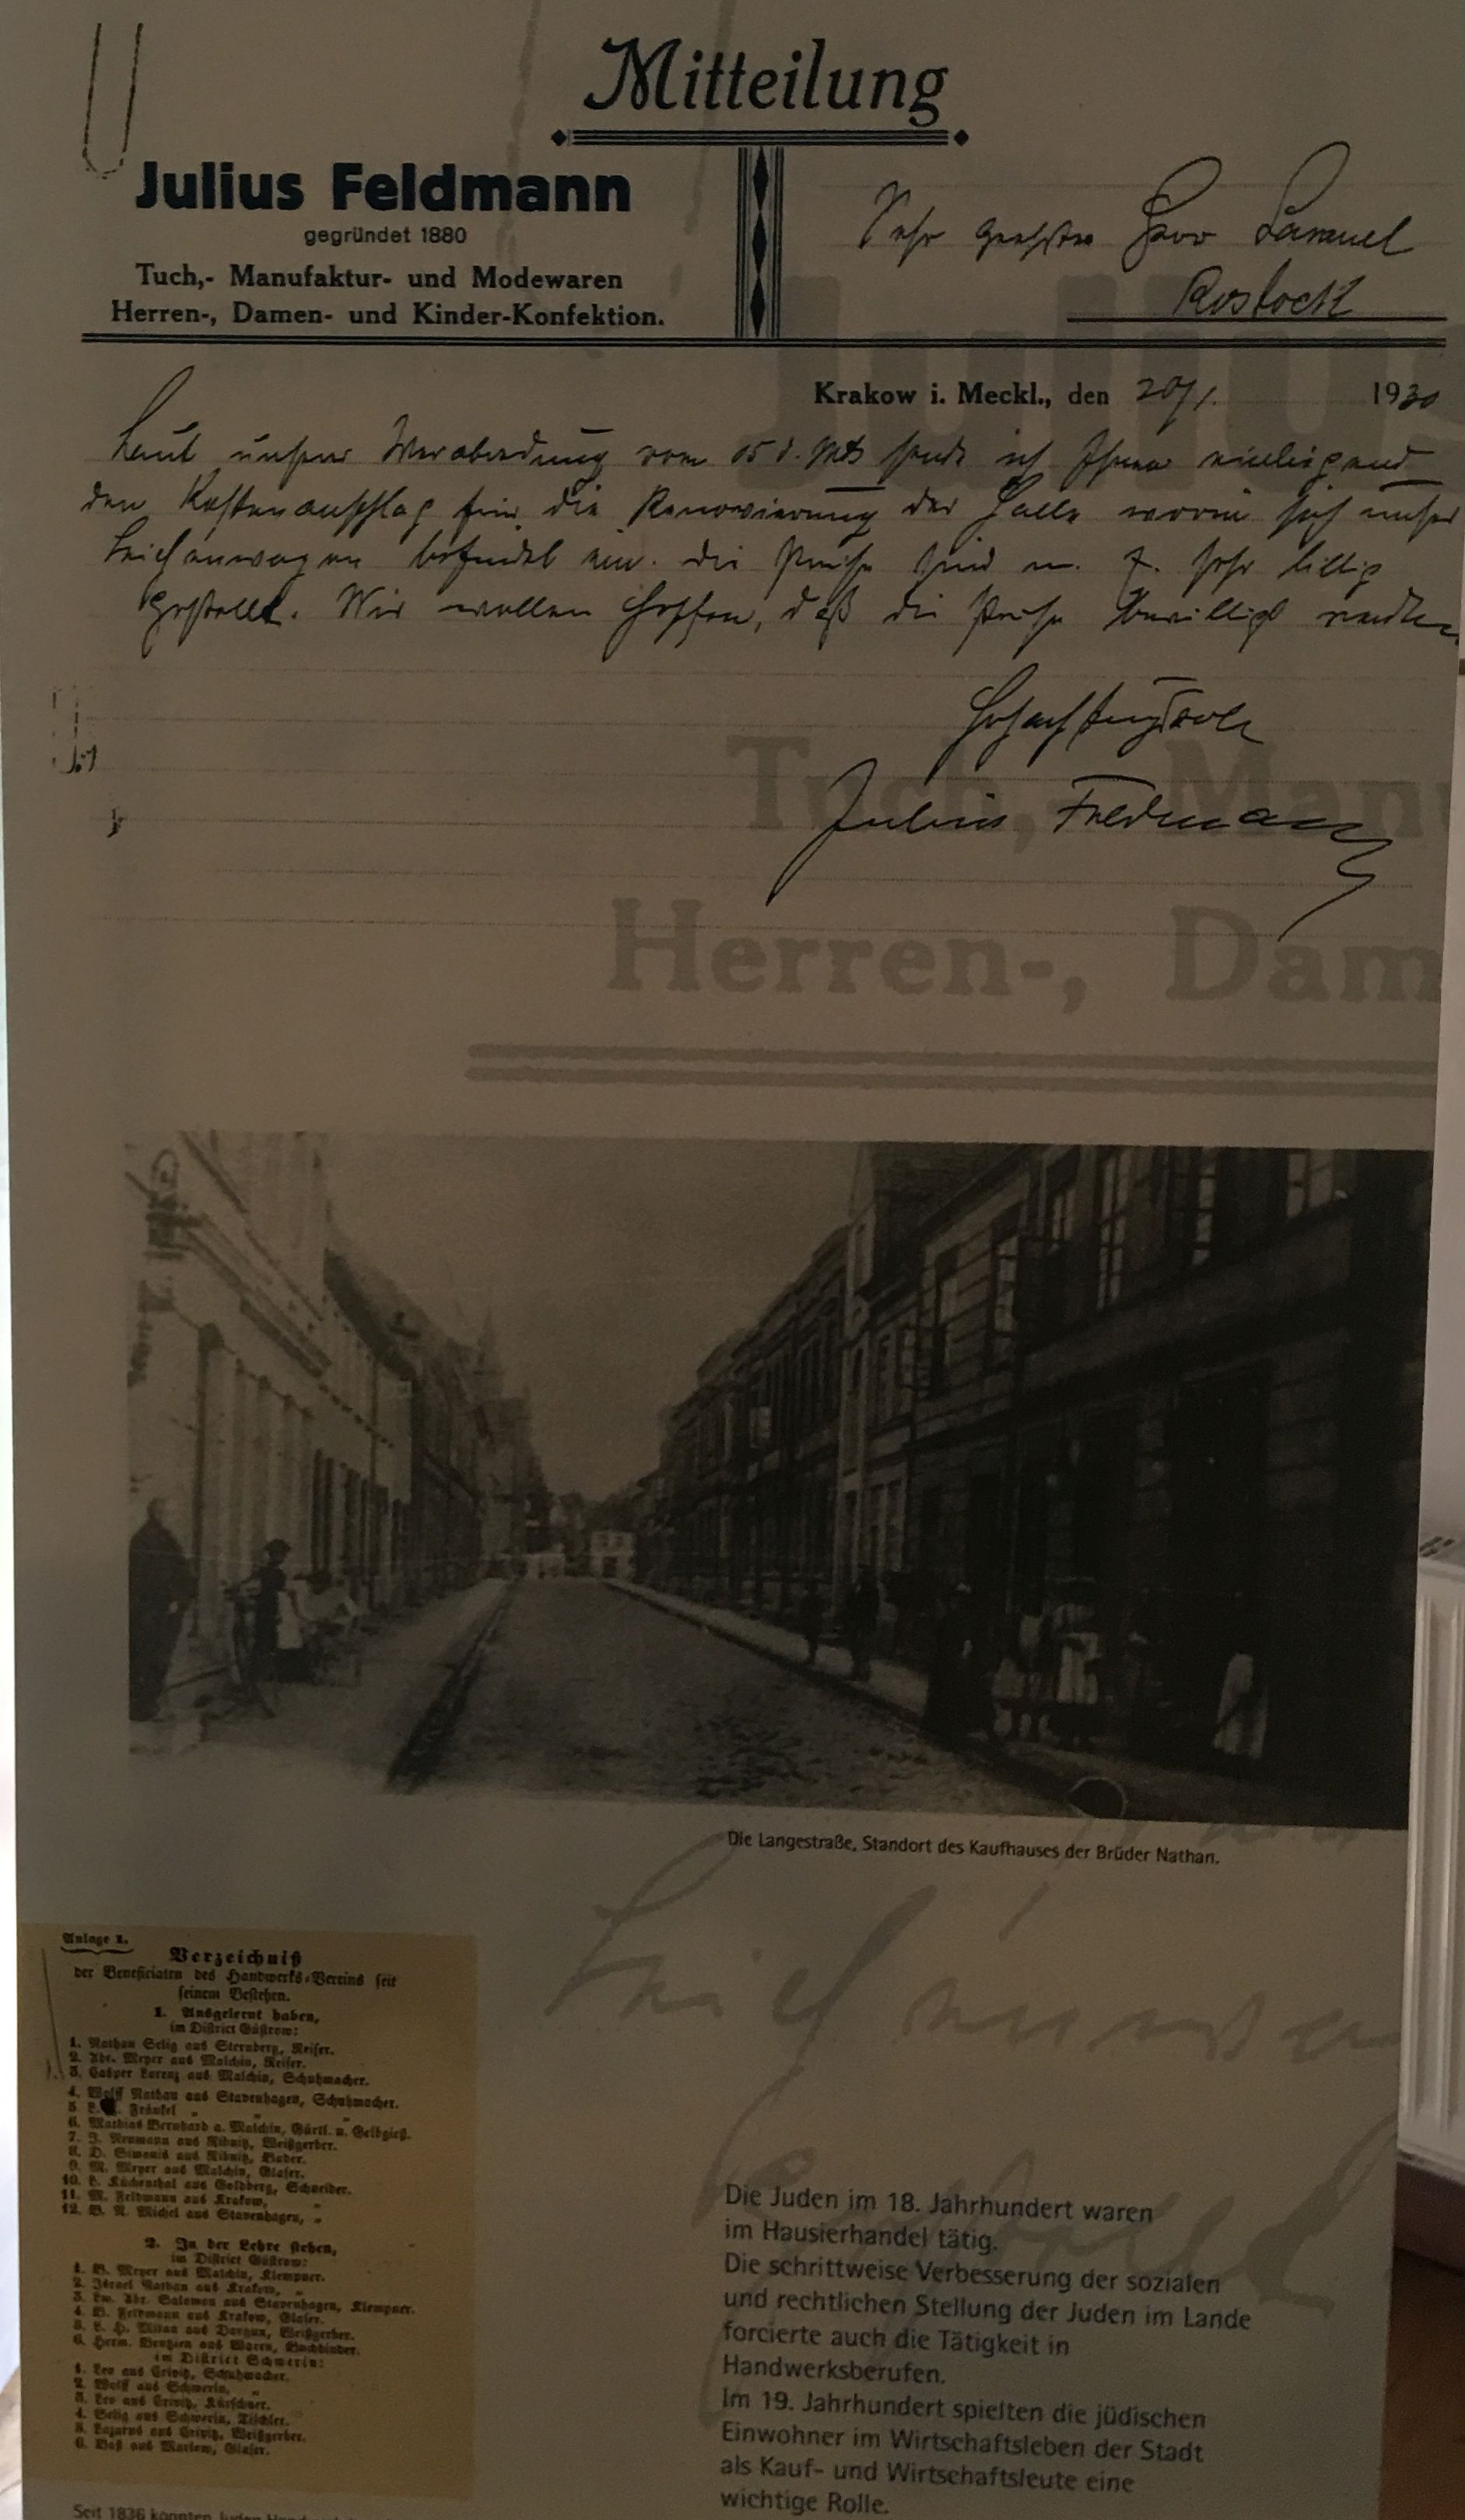 Mitteilung
Julius Feldmann
gegründet 1880
Tuch,- Manufaktur- und Modewaren
Herren-, Damen- und Kinder-Konfektion.
Sehr geehrter Herr Samuel
Rostock
Krakow i. Meckl., den 20/1. 1930
Laut unserer Verabredung vom 15 d. Mts sende ich Ihnen einliegend
den Kostenanschlag für die Renovierung der Halle worin sich unser
Leichenwagen befindet ein. die Preise sind m. E. sehr billig
gestellt. Wir wollen hoffen, daß die Preise bewilligt werden.
Hochachtungsvoll
Julius Feldmann
Tuch,- Man
Herren-, Dam
Die Langestraße, Standort des Kaufhauses der Brüder Nathan.
Anlage 1.
Verzeichniß
der Beneficiaten des Handwerks-Vereins seit
seinem Bestehen.
1. Ausgelernt haben,
im District Güstrow:
1. Nathan Selig aus Sternberg, Reifer.
2. Abr. Meyer aus Malchin, Reifer.
3. Casper Lorenz aus Malchin, Schuhmacher.
4. Wolff Nathan aus Stavenhagen, Schuhmacher.
5. Fränkel " "
6. Mathias Bernhard a. Malchin, Gürtl. u. Gelbgieß.
7. J. Neumann aus Ribnitz, Weißgerber.
8. D. Simonis aus Ribnitz, Bader.
9. M. Meyer aus Malchin, Glaser.
10. L. Küchenthal aus Goldberg, Schneider.
11. M. Feldmann aus Krakow, "
12. B. N. Michel aus Stavenhagen, "
2. In der Lehre stehen,
im District Güstrow:
1. B. Meyer aus Malchin, Klempner.
2. Israel Nathan aus Krakow, "
3. Lw. Abr. Salomon aus Stavenhagen, Klempner.
4. B. Feldmann aus Krakow, Glaser.
5. L. H. Milan aus Dargun, Weißgerber.
6. Herm. aus Waren, Buchbinder.
im District Schwerin:
1. Lev aus Crivitz, Schuhmacher.
2. Wolff aus Schwerin, "
3. Lev aus Crivitz, Kürschner.
4. Selig aus Schwerin, Tischler.
5. Lazarus aus Crivitz, Weißgerber.
6. aus Marlow, Glaser.
Die Juden im 18. Jahrhundert waren
im Hausierhandel tätig.
Die schrittweise Verbesserung der sozialen
und rechtlichen Stellung der Juden im Lande
forcierte auch die Tätigkeit in
Handwerksberufen.
Im 19. Jahrhundert spielten die jüdischen
Einwohner im Wirtschaftsleben der Stadt
als Kauf- und Wirtschaftsleute eine
wichtige Rolle.
Seit 1836 konnten Juden